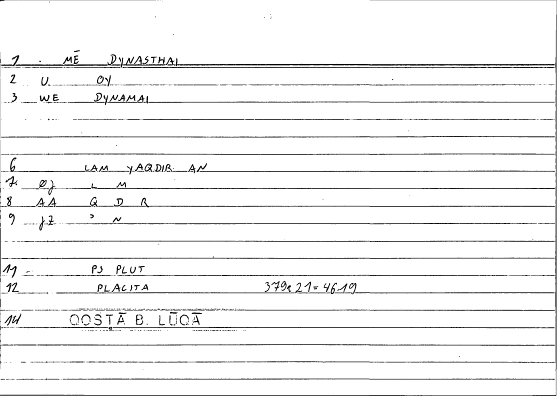 1 . MĒ DYNASTHAI
2 U. OY
3 WE DYNAMAI
6 LAM YAQDIR AN
7 Øj L M
8 AA Q D R
9 jZ ʾ N
11 - PS PLUT
12 PLACITA 379a21=4619
14 QOSTĀ B. LŪQĀ